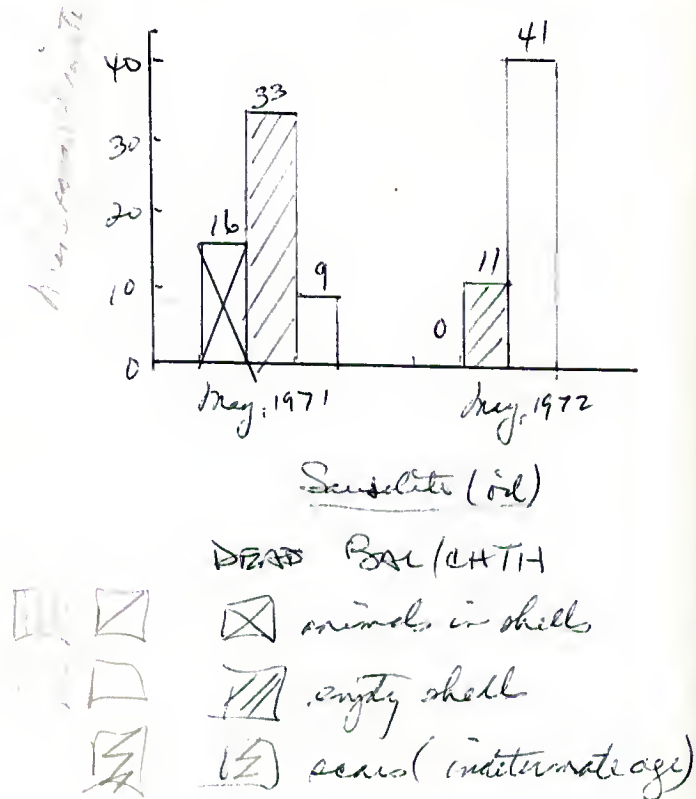 41
40
33
30
20
16
11
10
9
0
0
May, 1971 May, 1972
Sausalito (oil)
DEAD BAL/CHTH
animals in shells
empty shells
scars (indeterminate age)